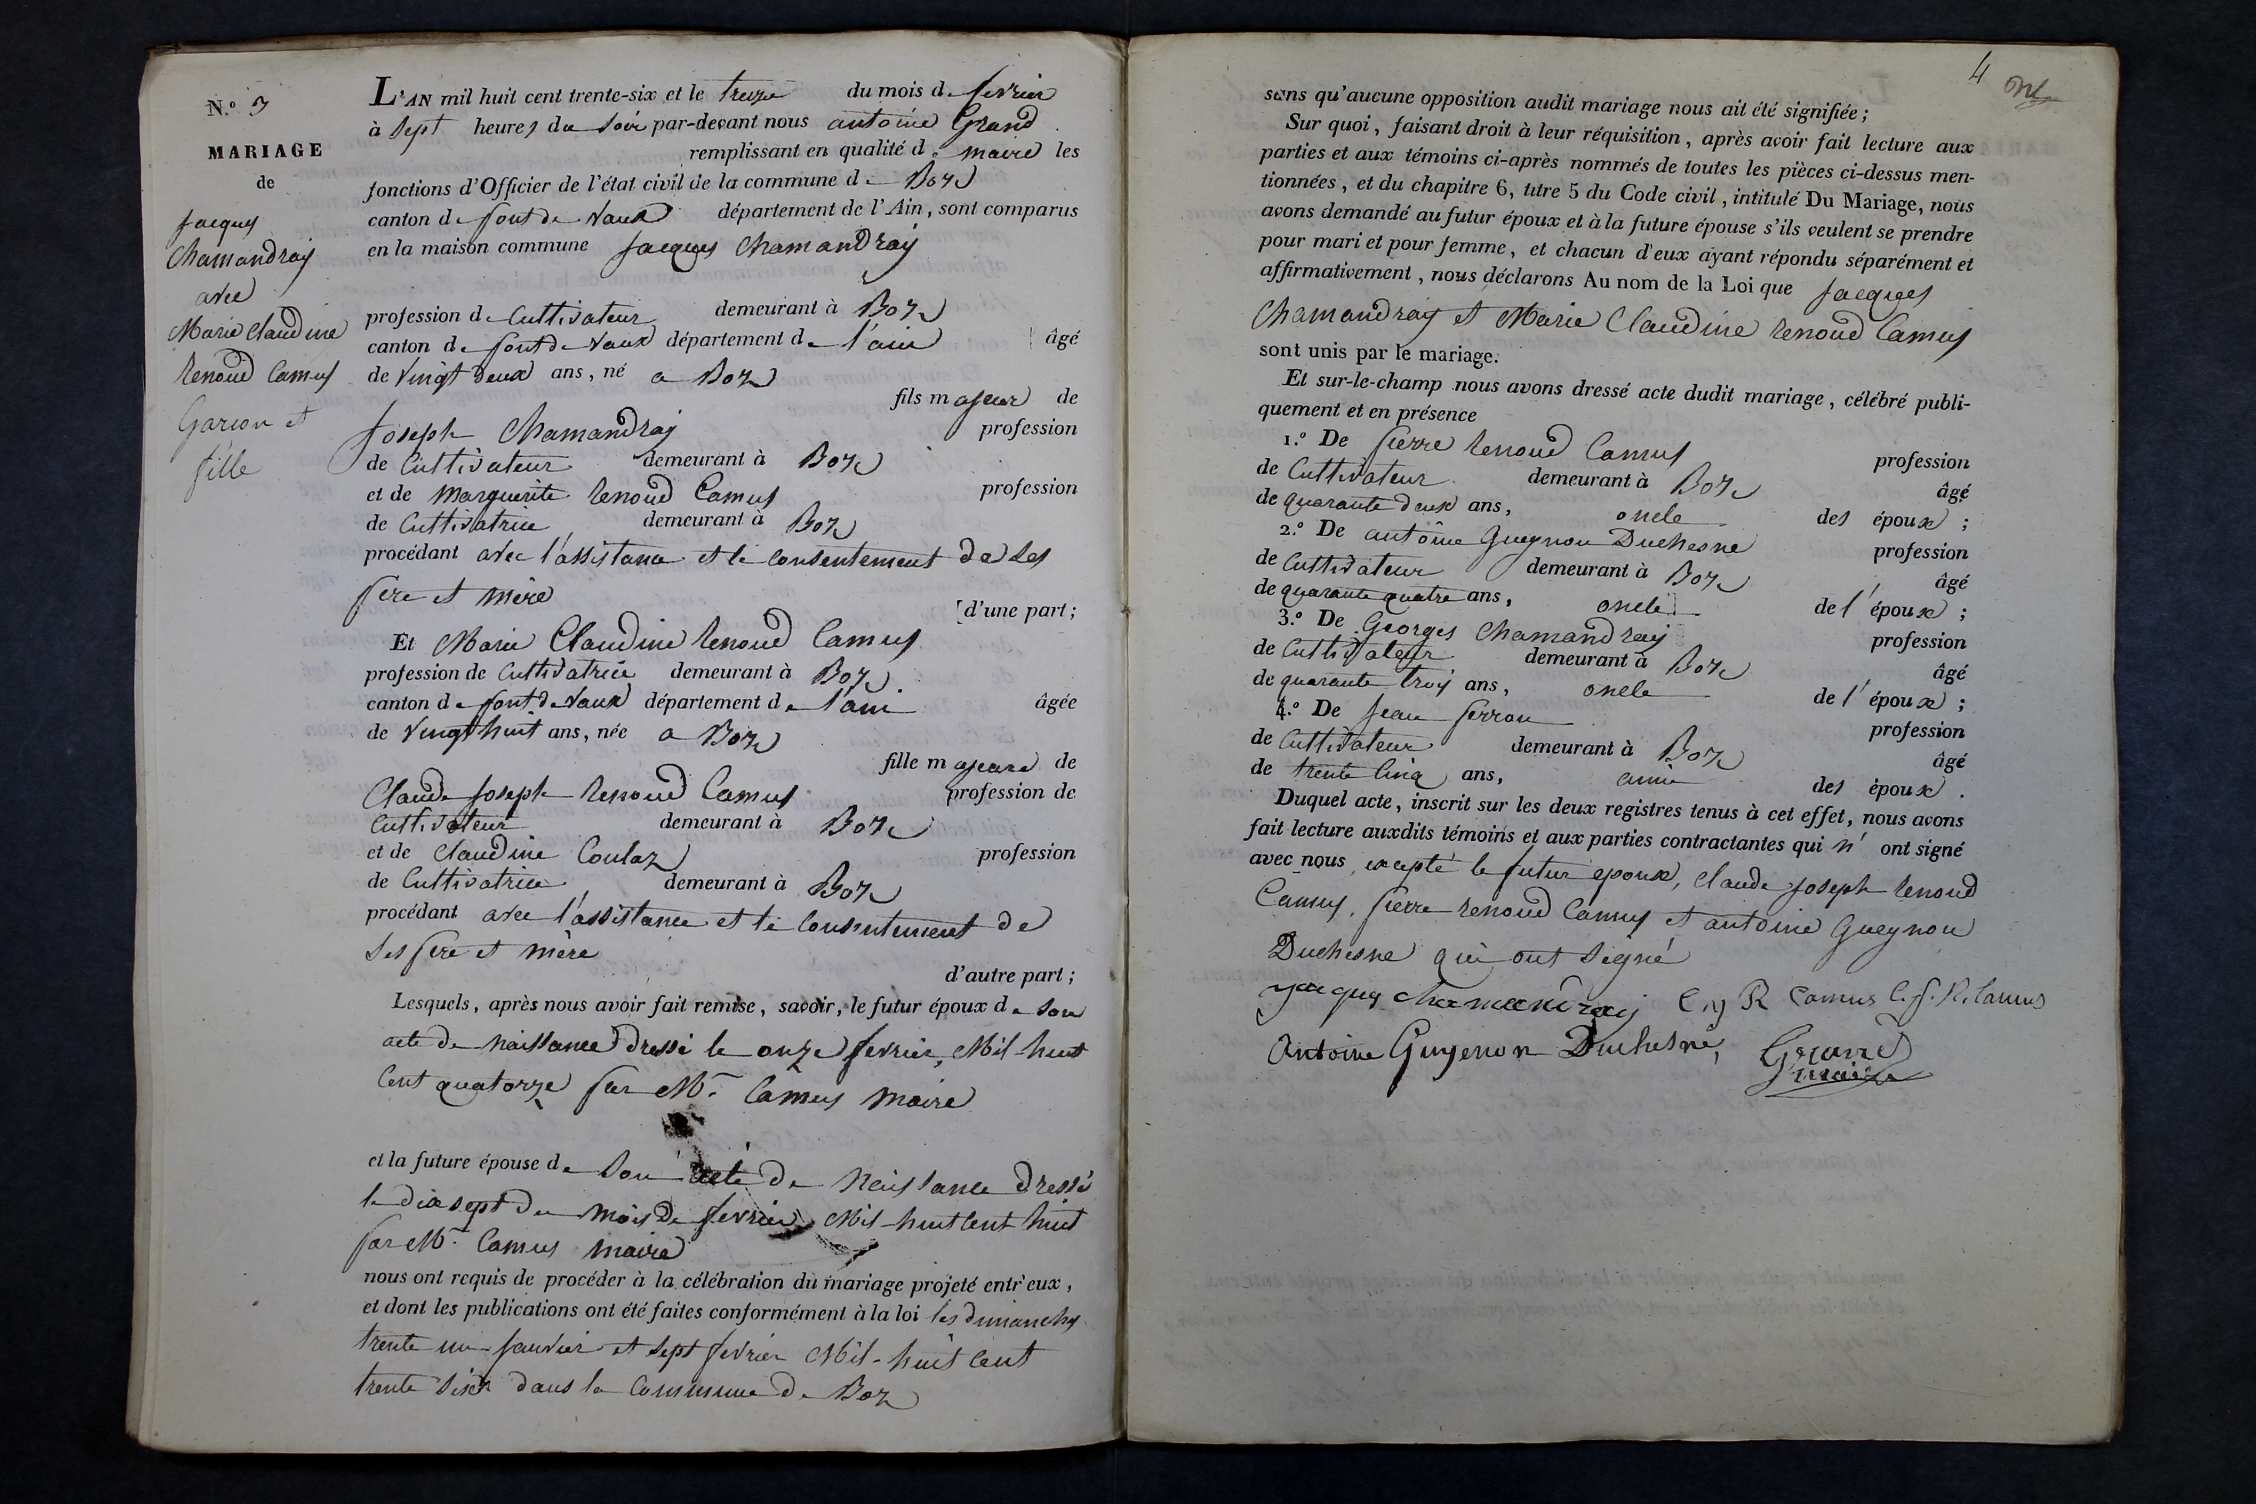 N.º 3
MARIAGE
de
Jacques
Chamandray
avec
Marie Claudine
Renoud Camus
Garcon et
fille
L'AN mil huit cent trente-six et le treize du mois de fevrier
à sept heures du soir par-devant nous antoine Grand
remplissant en qualité de maire les
fonctions d'Officier de l'état civil de la commune de Boz
canton de pont de vaux département de l'Ain, sont comparus
en la maison commune Jacques Chamandray
profession de Cultivateur demeurant à Boz
canton de pont de vaux département de l'ain âgé
de vingt deux ans, né a Boz
fils majeur de
Joseph Chamandray profession
de Cultivateur demeurant à Boz
et de Marguerite Renoud Camus profession
de Cultivatrice demeurant à Boz
procédant avec l'assistance et le consentement de ses
pere et mère
d'une part;
Et Marie Claudine Renoud Camus
profession de Cultivatrice demeurant à Boz
canton de pont de vaux département de l'ain âgée
de vingt huit ans, née a Boz
fille majeure de
Claude Joseph Renoud Camus profession de
Cultivateur demeurant à Boz
et de Claudine Coulaz profession
de Cultivatrice demeurant à Boz
procédant avec l'assistance et le consentement de
ses pere et mère
d'autre part;
Lesquels, après nous avoir fait remise, savoir, le futur époux de son
acte de naissance dressé le onze fevrier, Mil-huit
cent quatorze par Mr. Camus maire
et la future épouse de son acte de naissance dressé
le dix sept du mois de fevrier Mil-huit cent huit
par Mr. Camus maire
nous ont requis de procéder à la célébration du mariage projeté entr'eux,
et dont les publications ont été faites conformément à la loi les dimanches
trente un janvier et sept fevrier Mil-huit cent
trente six dans la Commune de Boz
4
sans qu'aucune opposition audit mariage nous ait été signifiée;
Sur quoi, faisant droit à leur réquisition, après avoir fait lecture aux
parties et aux témoins ci-après nommés de toutes les pièces ci-dessus men-
tionnées, et du chapitre 6, titre 5 du Code civil, intitulé Du Mariage, nous
avons demandé au futur époux et à la future épouse s'ils veulent se prendre
pour mari et pour femme, et chacun d'eux ayant répondu séparément et
affirmativement, nous déclarons Au nom de la Loi que Jacques
Chamandray et Marie Claudine Renoud Camus
sont unis par le mariage.
Et sur-le-champ nous avons dressé acte dudit mariage, célébré publi-
quement et en présence
1.º De pierre Renoud Camus profession
de Cultivateur demeurant à Boz âgé
de quarante deux ans, oncle des époux;
2.º De antoine Gueynon Duchesne profession
de Cultivateur demeurant à Boz âgé
de quarante quatre ans, oncle de l'époux;
3.º De Georges Chamandray profession
de Cultivateur demeurant à Boz âgé
de quarante trois ans, oncle de l'époux;
4.º De Jean perron profession
de Cultivateur demeurant à Boz âgé
de trente cinq ans, amie des époux.
Duquel acte, inscrit sur les deux registres tenus à cet effet, nous avons
fait lecture auxdits témoins et aux parties contractantes qui n' ont signé
avec nous, excepté le futur epoux, Claude Joseph Renoud
Camus, pierre Renoud Camus et antoine Gueynon
Duchesne qui ont signé
Jacques chamandray C j R Camus C. p. R. Camus
Antoine Guyenon Duchesne, Grand
maire